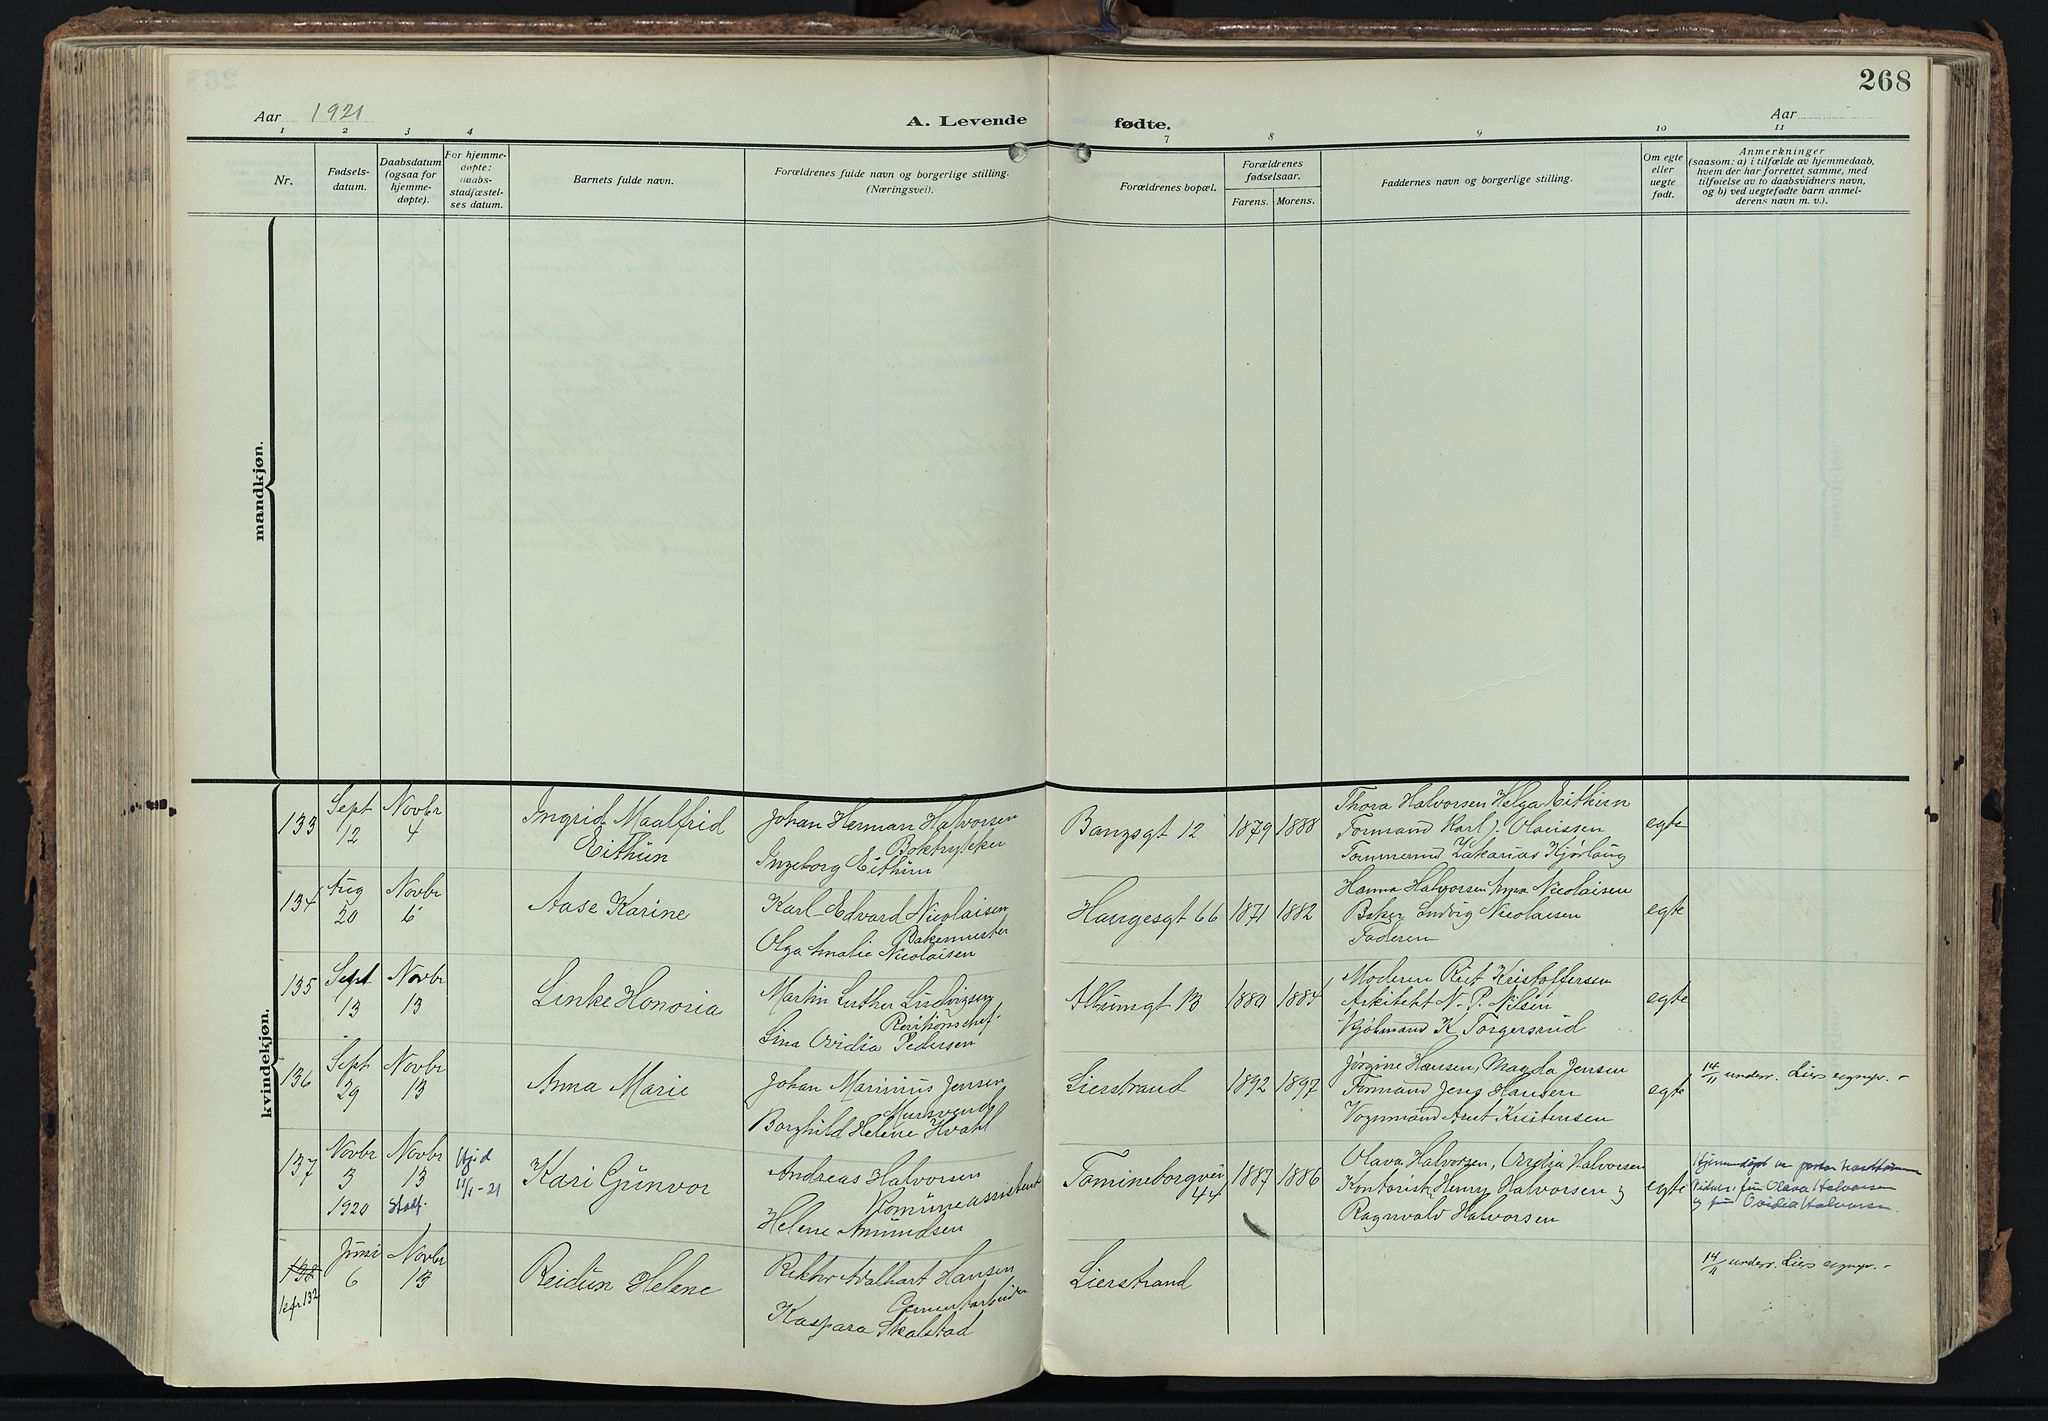 268
Aar 1921
A. Levende fødte.
Aar
1 2 3 4 7 8 9 10 11
Nr.
Fødsels-
datum.
Daabsdatum
(ogsaa for
hjemme-
døpte).
For hjemme-
døpte:
daabs-
stadfæstel-
ses datum.
Barnets fulde navn.
Forældrenes fulde navn og borgerlige stilling.
(Næringsvei).
Forældrenes bopæl.
Forældrenes
fødselsaar.
Farens. Morens.
Faddernes navn og borgerlige stilling.
Om egte
eller
uegte
født.
Anmerkninger
(saasom: a) i tilfælde av hjemmedaab,
hvem der har forrettet samme, med
tilføielse av to daabsvidners navn,
og b) ved uegtefødte barn anmel-
derens navn m. v.).
mandkjøn.
kvindekjøn.
133
Sept
12
Novbr
4
Ingrid Maalfrid
Eithun
Johan Herman Halvorsen
Boktrykker
Ingeborg Eithun
Banzsgt 12
1879
1888
Thora Halvorsen Helga Eithun
Formand Karl J. Olaussen
Tømmermd Zakarias Kjørlaug
egte
134
Aug
20
Novbr
6
Aase Karine
Karl Edvard Nicolaisen
Bakermester
Olga Amalie Nicolaisen
Haugesgt 66
1871
1882
Hanna Halvorsen Anna Nicolaisen
Baker Ludvig Nicolaisen
Faderen
egte
135
Sept
13
Novbr
13
Linke Honoria
Martin Luther Ludvigsen
Revisionschef
Lina Ovidia Pedersen
Albumgt 13
1880
1884
Moderen Rut Kristoffersen
Arkitekt N. P. Nilsen
Kjøbmand K. Torgersrud
egte
136
Sept
29
Novbr
13
Anna Marie
Johan Marinius Jensen
Mursvend
Borghild Helene Hvahl
Lierstrand
1892
1897
Jørgine Hansen, Magda Jensen
Formand Jens Hansen
Vognmand Arnt Kristensen
egte
14/11 underr. Liers sognepr. -
137
Novbr
3
1920
Novbr
13
Stadf.
Hj.d
11/1 - 21
Kari Gunvor
Andreas Halvorsen
Komuneassistent
Helene Amundsen
Tomineborgvei
44
1887
1886
Olava Halvorsen, Ovidia Halvorsen
Kontorist Henry Halvorsen og
Ragnvald Halvorsen
egte
Hjemmedøpt av pastor
Vidner: fru Olava Halvorsen
og fru Ovidia Halvorsen.
138
kfr 132
Juni
6
Novbr
13
Reidun Helene
Rektor Walhart Hansen
Cementarbeider
Kaspara Skalstad
Lierstrand
14/11 underr. Liers sognepr. -